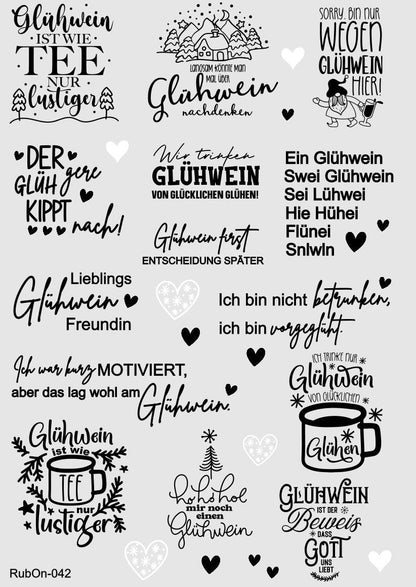 Glühwein
IST WIE
TEE
NUR
lustiger
LANGSAM KÖNNTE MAN
MAL ÜBER
Glühwein
nachdenken
SORRY, BIN NUR
WEGEN
GLÜHWEIN
HIER!
DER
GLÜH gere
KIPPT
nach!
Wir trinken
GLÜHWEIN
VON GLÜCKLICHEN GLÜHEN!
Ein Glühwein
Swei Glühwein
Sei Lühwei
Hie Hühei
Flünei
Snlwln
Glühwein first
ENTSCHEIDUNG SPÄTER
Lieblings
Glühwein
Freundin
Ich bin nicht betrunken,
ich bin vorgeglüht.
Ich war kurz MOTIVIERT,
aber das lag wohl am
Glühwein.
ICH TRINKE NUR
Glühwein
VON GLÜCKLICHEN
Glühen
Glühwein
ist wie
TEE
nur
lustiger
hohoho!
mir noch
einen
Glühwein
GLÜHWEIN
IST DER
Beweis
DASS
GOTT
UNS
LIEBT
RubOn-042